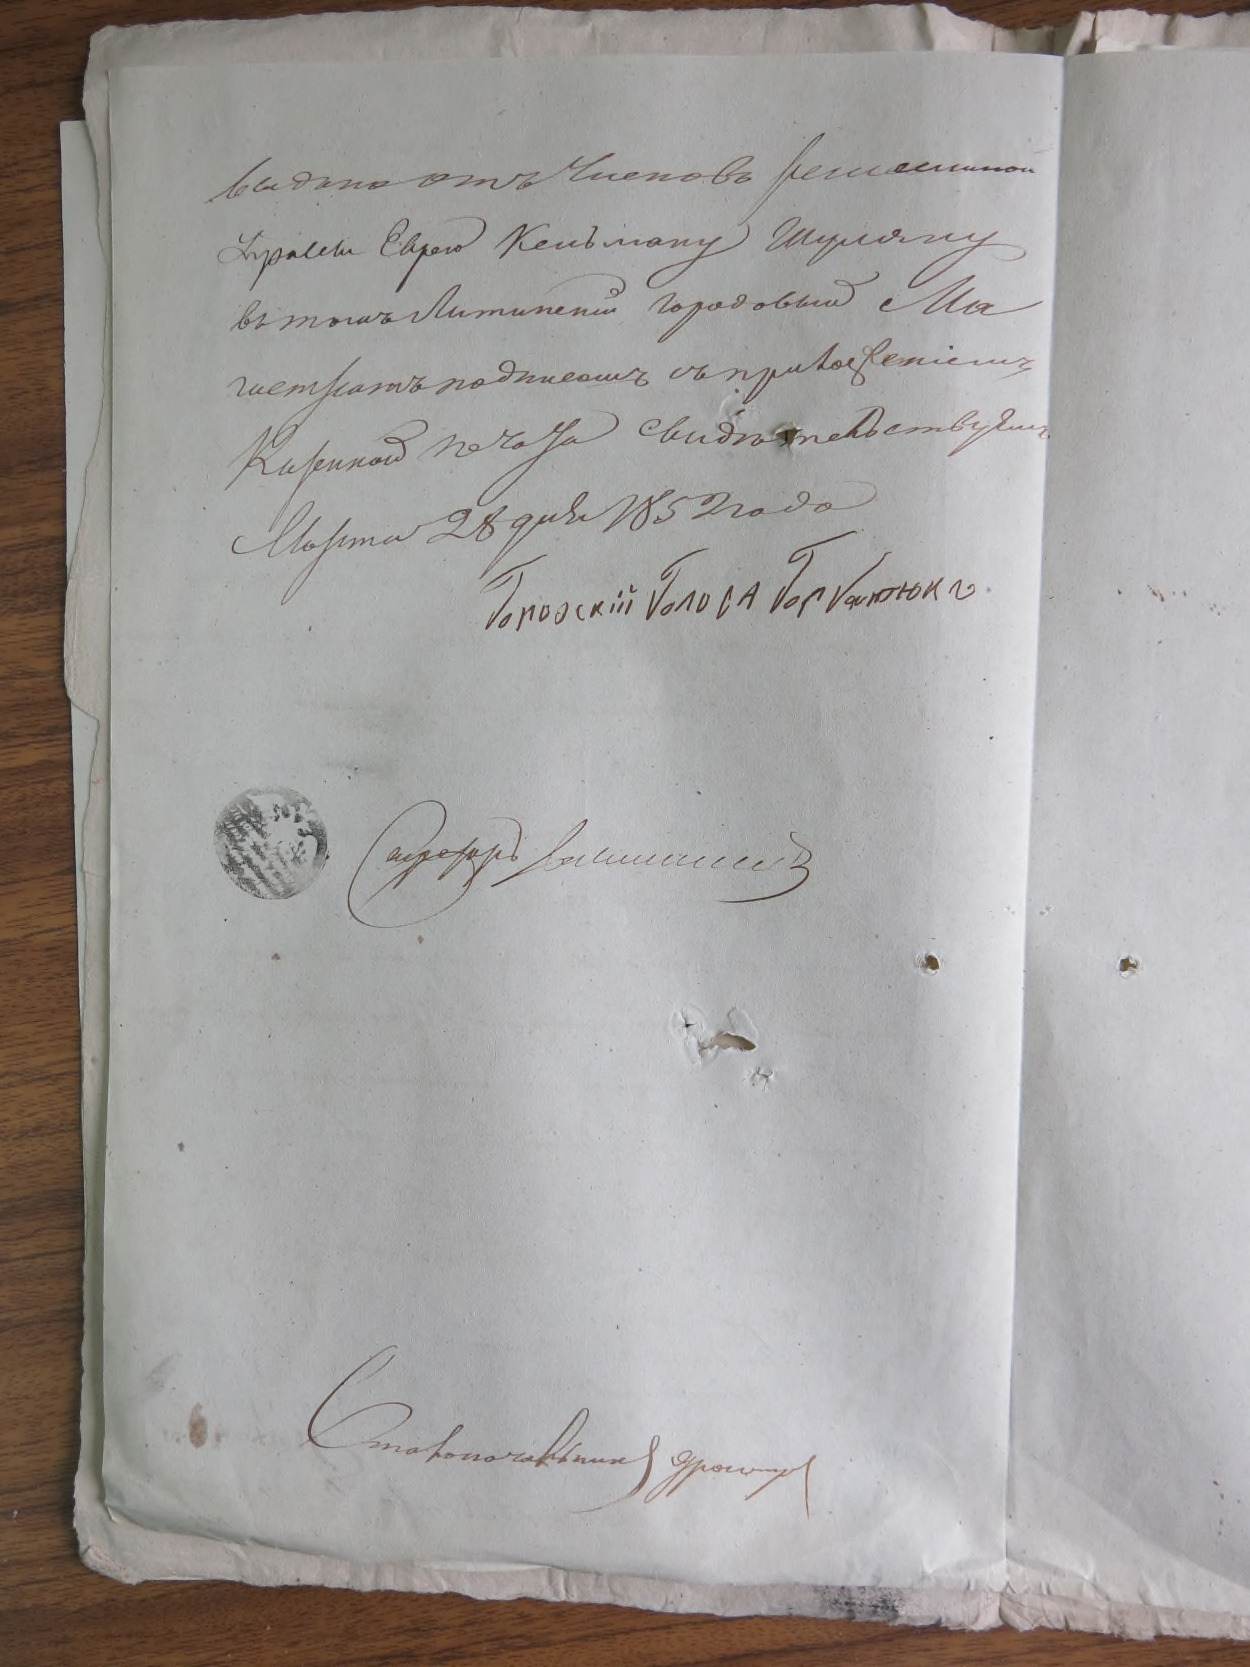 выдано отъ Членовъ ремесленной
Управы Еврею Кельману Шуляну
въ томъ Литинский городовый Ма
гистратъ подписомъ съ приложениемъ
Казенной печати свидѣтельствуетъ
Марта 28 дня 1852 года
Городский Голова Горбатюкъ
Секретарь
Столоначальникъ